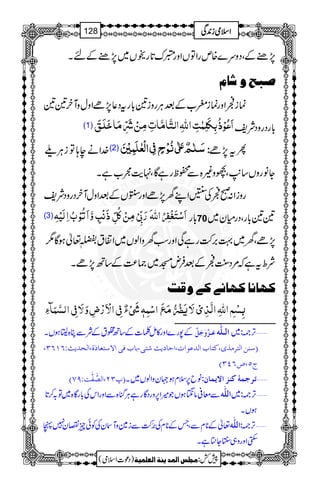 اسلامی زندگی 128
پڑھنے کے، دوسرے خاص راتوں اور متبرک تاریخوں میں پڑھنے کے لئے۔
صبح و شام
نمازِ فجر اور نمازِ مغرب کے بعد ہر روز یہ دعا پڑھے اول و آخر تین تین
بار درود شریف اَعُوْذُ بِكَلِمٰتِ اللّٰهِ التَّامَّاتِ مِنْ شَرِّ مَا خَلَقَ (1)
پھر یہ پڑھے: سَلٰمٌ عَلٰى نُوْحٍ فِی الْعٰلَمِیْنَ (2) خدا نے چاہا تو زہریلے
جانوروں سانپ، بچھو وغیرہ سے محفوظ رہے گا، نہایت مجرب ہے۔
روزانہ صبح فجر کی سنتیں اپنے گھر پڑھے اور سنتوں کے بعد اول آخر درود شریف
تین تین بار، درمیان میں 70 بار اَسْتَغْفِرُ اللّٰهَ رَبِّیْ مِنْ كُلِّ ذَنْبٍ وَّاَتُوْبُ اِلَیْهِ (3)
پڑھے، گھر میں بہت برکت رہے گی اور سب گھر والوں میں اتفاق بفضلہٖ تعالیٰ ہوگا مگر
شرط یہ ہے کہ مرد سنت فجر کے بعد فرض مسجد میں جماعت کے ساتھ پڑھے۔
کھانا کھانے کے وقت
بِسْمِ اللّٰهِ الَّذِیْ لَا یَضُرُّ مَعَ اسْمِهٖ شَیْءٌ فِی الْاَرْضِ وَلَا فِی السَّمَآءِ
1 ۔۔۔ ترجمہ: میں اللّٰہ عَزَّوَجَلَّ کے پورے اور کامل کلمات کے ساتھ مخلوق کے شر سے پناہ لیتا ہوں۔
(سنن الترمذی، کتاب الدعوات، احادیث شتی، باب فی الاستعاذة، الحدیث: ٣٦١٦،
ج٥، ص٣٤٦)
2 ۔۔۔ ترجمۂ کنز الایمان: نوح پر سلام ہو جہان والوں میں۔ (پ٢٣، الصّٰفّٰت: ٧٩)
3 ۔۔۔ ترجمہ: میں اللّٰہ سے معافی مانگتا ہوں جو میرا پروردگار ہے ہر گناہ سے اور اس کی بارگاہ میں توبہ کرتا
ہوں۔
4 ۔۔۔ ترجمہ: اللّٰہ تعالیٰ کے نام سے جس کے نام کی برکت سے زمین و آسمان کی کوئی چیز نقصان نہیں پہنچا
سکتی اور وہی سنتا جانتا ہے۔
پیش کش: مجلس المدینة العلمیة (دعوتِ اسلامی)